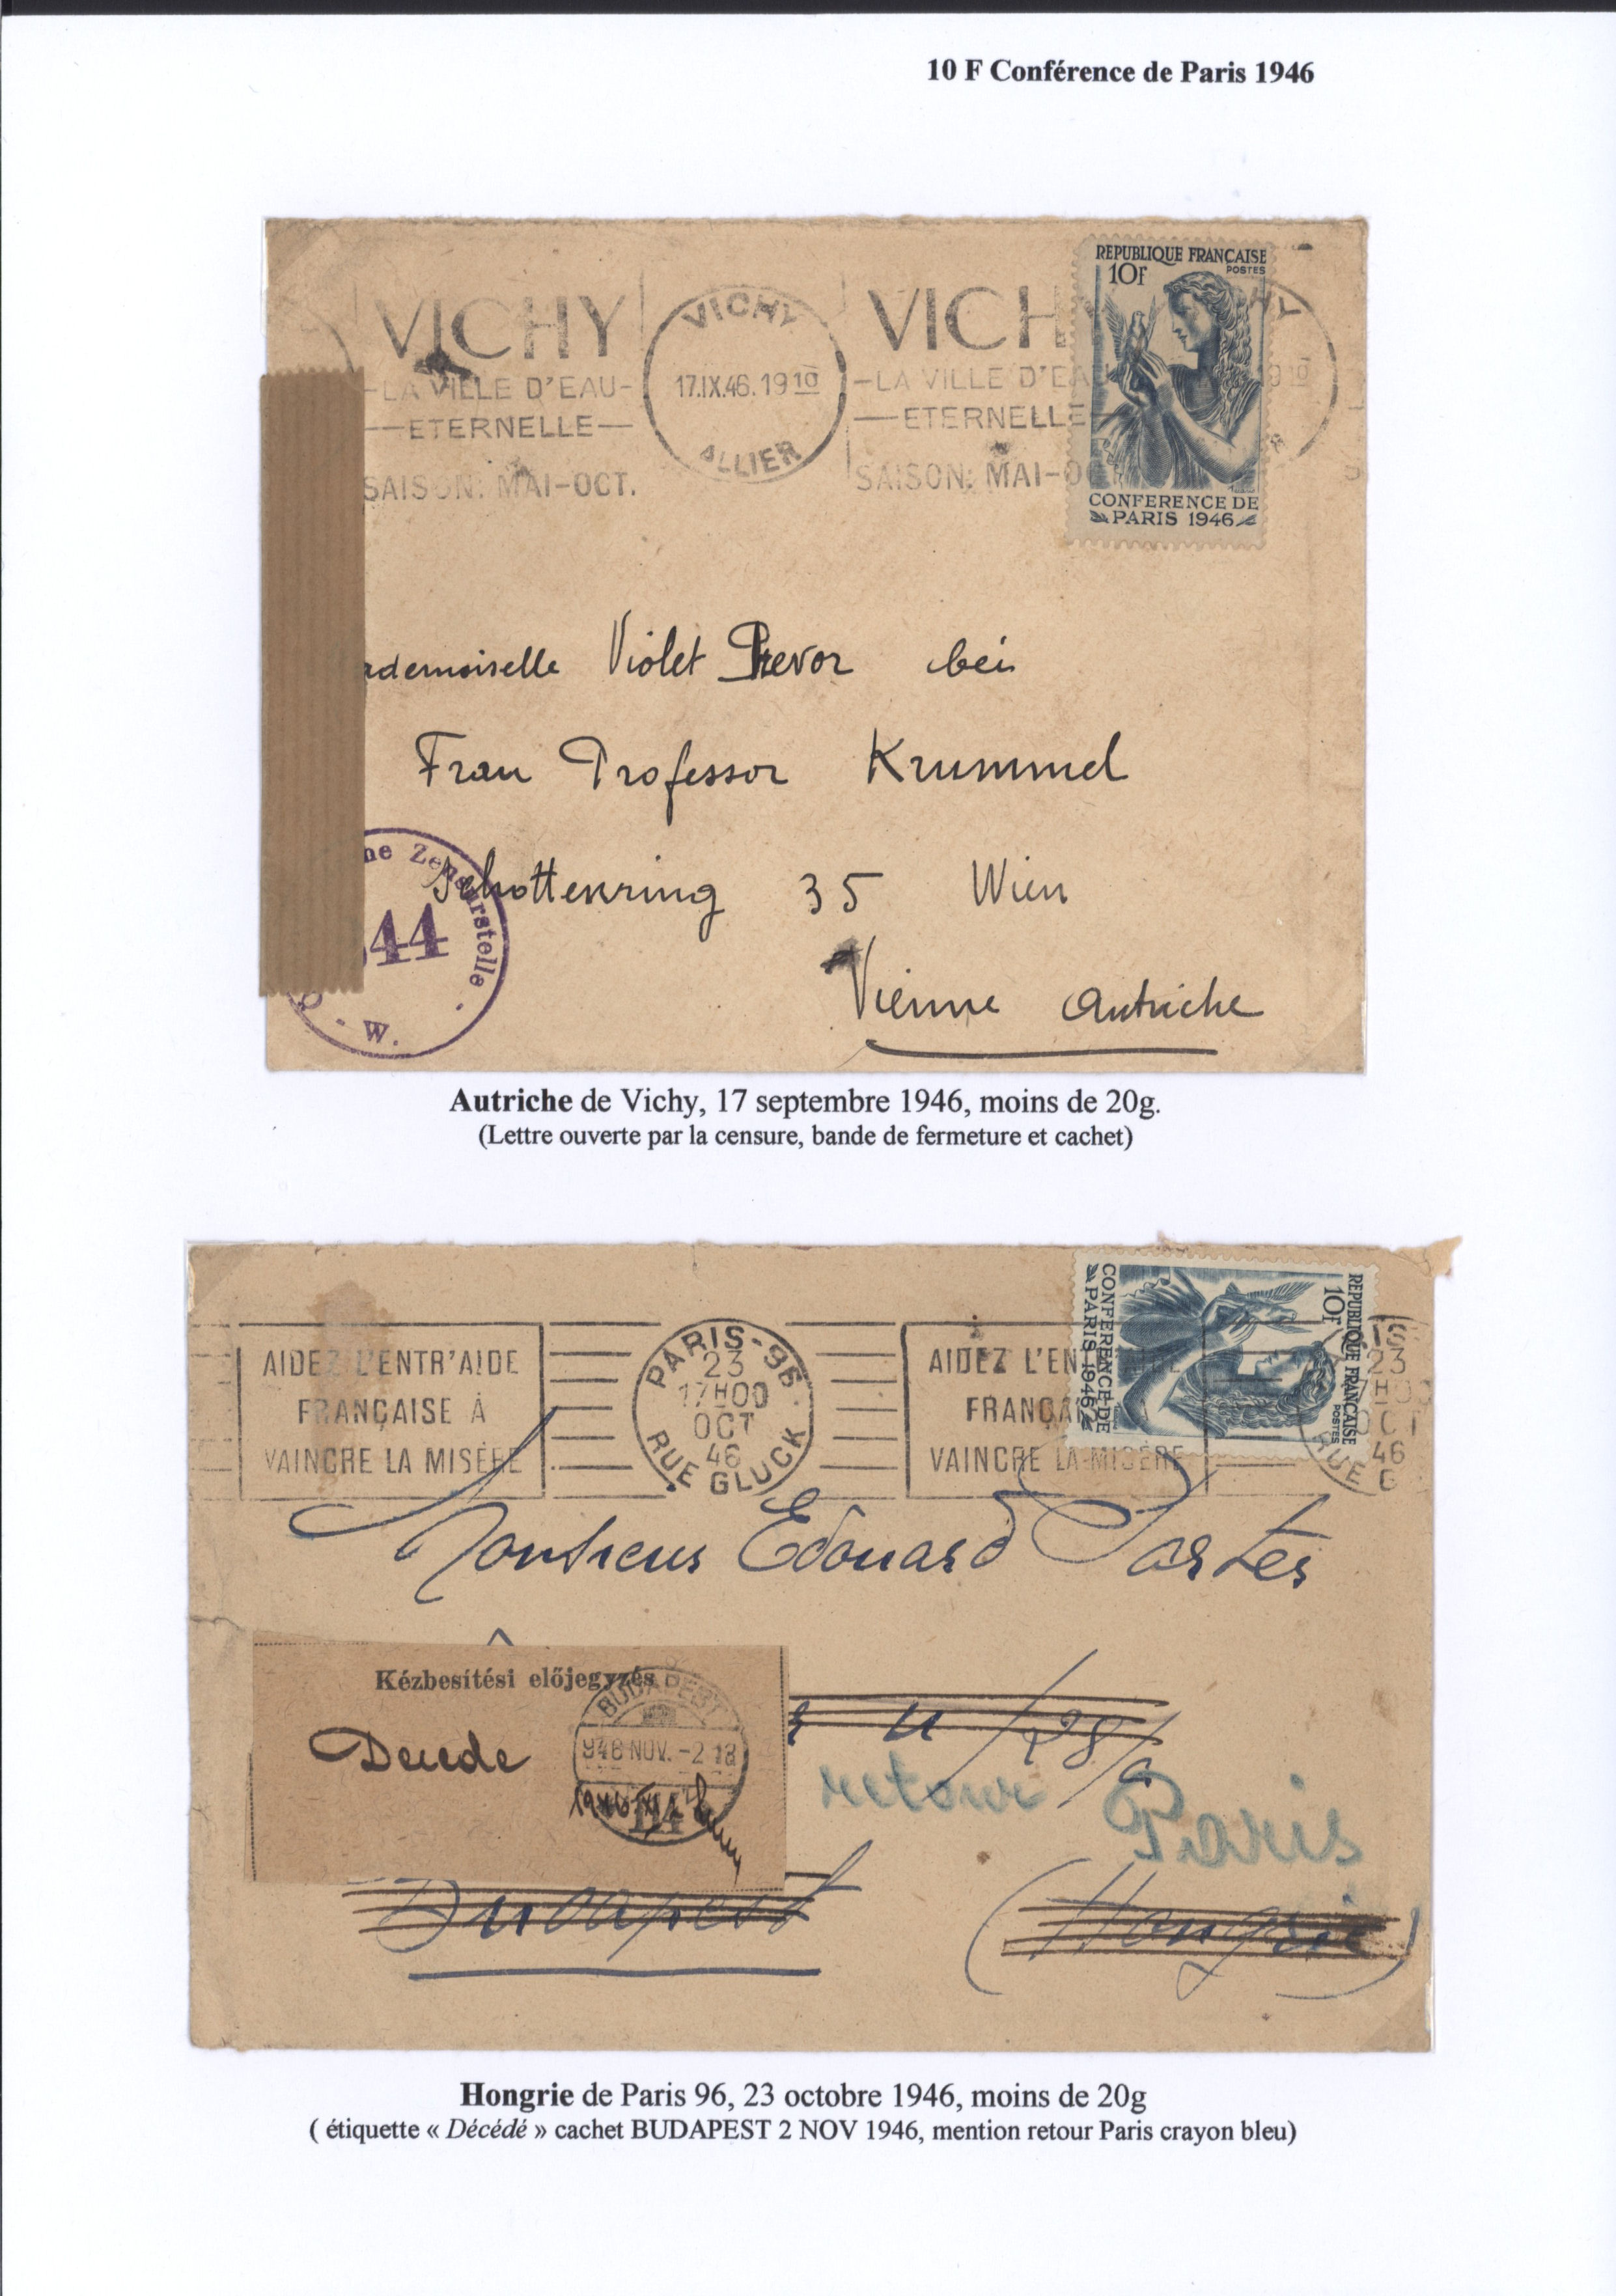 10 F Conférence de Paris 1946
REPUBLIQUE FRANÇAISE
POSTES
10F
VICHY
LA VILLE D'EAU
ETERNELLE
SAISON: MAI-OCT.
VICHY
17.IX.46.19 10
ALLIER
VICH
LA VILLE D'EAU
ETERNELLE
SAISON: MAI-OC
CONFERENCE DE
PARIS 1946
ademoiselle Violet Prevor bei
Frau Professor Krummel
Schottenring 35 Wien
Vienne Autriche
ne Zensurstelle
44
W.
Autriche de Vichy, 17 septembre 1946, moins de 20g.
(Lettre ouverte par la censure, bande de fermeture et cachet)
REPUBLIQUE FRANÇAISE
POSTES
10F
CONFERENCE DE
PARIS 1946
AIDEZ L'ENTR'AIDE
FRANÇAISE À
VAINCRE LA MISÈRE
PARIS-96
23
17H00
OCT
46
RUE GLUCK
AIDEZ L'EN
FRANÇA
VAINCRE LA MISÈRE
IS
23
7H00
OCT
46
RUE G
Monsieur Edouard
Kézbesítési előjegyzés
Décédé
BUDAPEST
946 NOV.-2.18
114
u 28/
retour Paris
Budapest
(Hongrie)
Hongrie de Paris 96, 23 octobre 1946, moins de 20g
( étiquette « Décédé » cachet BUDAPEST 2 NOV 1946, mention retour Paris crayon bleu)